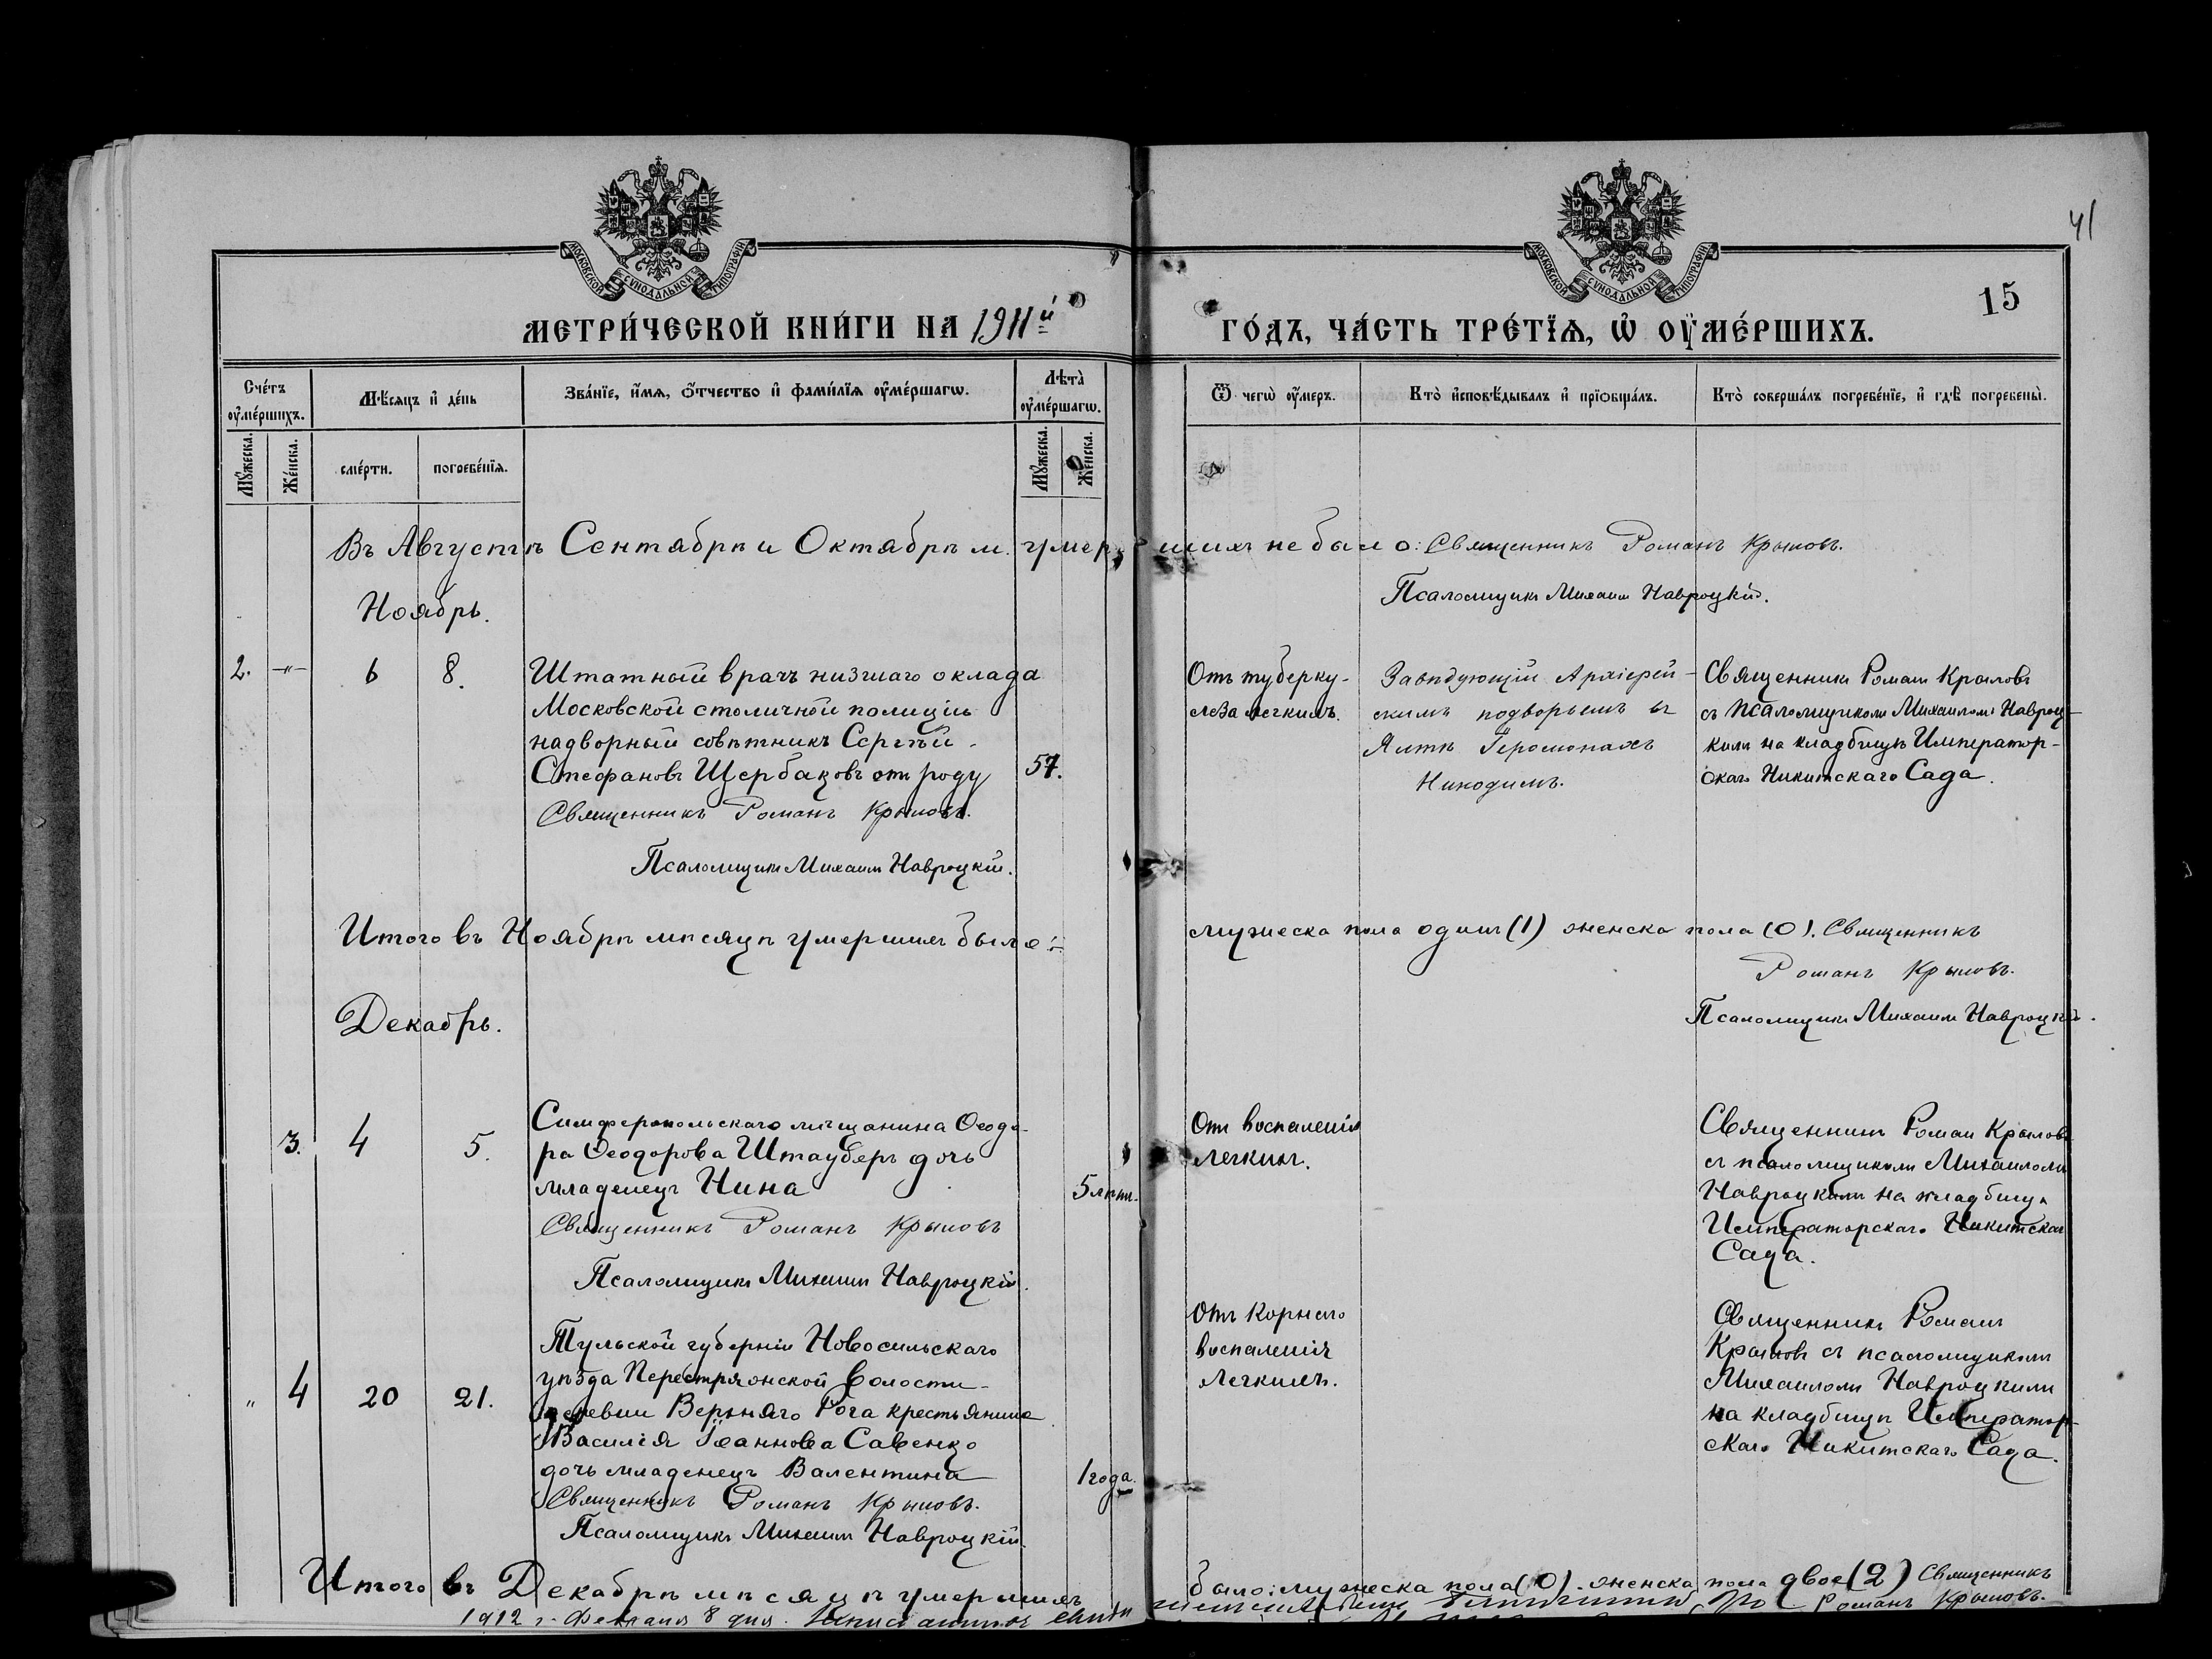 41
МОСКОВСКОЙ СѴНОДАЛЬНОЙ ТИПОГРАФІИ
МОСКОВСКОЙ СѴНОДАЛЬНОЙ ТИПОГРАФІИ
15
МЕТРИ́ЧЕСКОЙ КНИ́ГИ НА 1911й
ГО́ДЪ, ЧА́СТЬ ТРЕ́ТІѦ, Ѡ҆ ОУ҆МЕ́РШИХЪ.
Сче́тъ оу҆ме́ршихъ.
Мѣ́сяцъ и҆ де́нь
Зва́нїе, и҆́мѧ, ѻ҆́тчество и҆ фами́лїѧ оу҆ме́ршагѡ.
Лѣта̀ оу҆ме́ршагѡ.
Ѿ чегѡ̀ оу҆́меръ.
Кто̀ и҆сповѣ́дывалъ и҆ прїѡбща́лъ.
Кто̀ соверша́лъ погребе́нїе, и҆ гдѣ̀ погребены̀.
Мꙋ́жеска.
Же́нска.
сме́рти.
погребе́нїѧ.
Мꙋ́жеска.
Же́нска.
Въ Августѣ Сентябрѣ и Октябрѣ м. умершихъ не было: Священникъ Романъ Крыловъ.
Псаломщикъ Михаилъ Навроцкій.
Ноябрь.
2. -"- 6 8.
Штатный врачъ низшаго оклада
Московской столичной полиціи
надворный совѣтникъ Сергѣй
Стефановъ Щербаковъ отъ роду
57.
Священникъ Романъ Крыловъ.
Псаломщикъ Михаилъ Навроцкій.
Отъ туберку-
леза легкихъ.
Завѣдующій Архіерей-
скимъ подворьемъ въ
Ялтѣ Іеромонахъ
Никодимъ.
Священникъ Романъ Крыловъ
съ псаломщикомъ Михаиломъ Навроц-
кимъ на кладбищѣ Император-
скаго Никитскаго Сада.
Итого въ Ноябрѣ мѣсяцѣ умершихъ было:
мужеска пола одинъ (1) женска пола (0). Священникъ
Романъ Крыловъ.
Псаломщикъ Михаилъ Навроцкій.
Декабрь.
3. 4 5.
Симферопольскаго мѣщанина Ѳеодо-
ра Ѳеодорова Штауберъ дочь
младенецъ Нина
5 лѣтъ.
Священникъ Романъ Крыловъ
Псаломщикъ Михаилъ Навроцкій.
Отъ воспаленія
легкихъ.
Священникъ Романъ Крыловъ
съ псаломщикомъ Михаиломъ
Навроцкимъ на кладбищѣ
Императорскаго Никитскаго
Сада.
" 4 20 21.
Тульской губерніи Новосильскаго
уѣзда волости
деревни Верхняго Рога крестьянина
Василія Іоаннова Савенко
дочь младенецъ Валентина
1 года.
Священникъ Романъ Крыловъ.
Псаломщикъ Михаилъ Навроцкій.
Отъ
воспаленія
легкихъ.
Священникъ Романъ
Крыловъ съ псаломщикомъ
Михаиломъ Навроцкимъ
на кладбищѣ Император-
скаго Никитскаго Сада.
Итого въ Декабрѣ мѣсяцѣ умершихъ
было: мужеска пола (0). женска пола двое (2) Священникъ
Романъ Крыловъ.
1912 г. Февраля 8 дня.